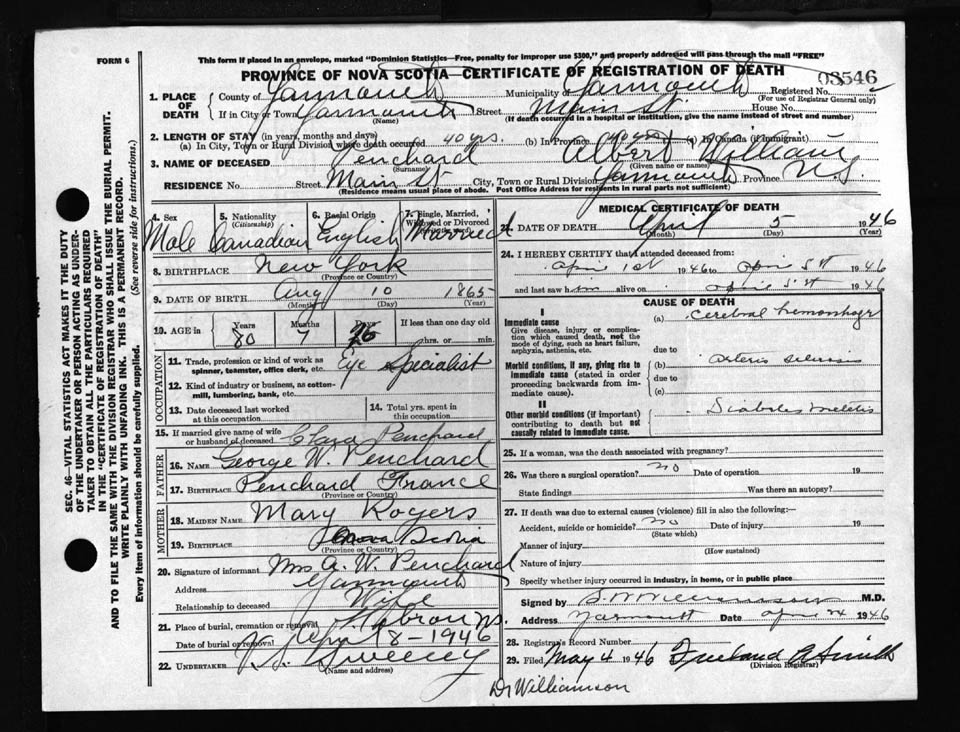 FORM 6
This form if placed in an envelope, marked "Dominion Statistics—Free, penalty for improper use $300," and properly addressed will pass through the mail "FREE"
PROVINCE OF NOVA SCOTIA—CERTIFICATE OF REGISTRATION OF DEATH
03546
1. PLACE OF DEATH
County of Yarmouth Municipality of Yarmouth Registered No.
(For use of Registrar General only)
If in City or Town Yarmouth Street Main St. House No.
(Name) (If death occurred in a hospital or institution, give the name instead of street and number)
2. LENGTH OF STAY (in years, months and days)
(a) In City, Town or Rural Division where death occurred 40 yrs. (b) In Province 40 yrs (c) In Canada (if immigrant)
3. NAME OF DECEASED Penchard Albert William
(Surname) (Given name or names)
RESIDENCE No. Street Main St City, Town or Rural Division Yarmouth Province N.S.
(Residence means usual place of abode. Post Office Address for residents in rural parts not sufficient)
SEC. 46—VITAL STATISTICS ACT MAKES IT THE DUTY OF THE UNDERTAKER OR PERSON ACTING AS UNDERTAKER TO OBTAIN ALL THE PARTICULARS REQUIRED IN THE "CERTIFICATE OF REGISTRATION OF DEATH" AND TO FILE THE SAME WITH THE DIVISION REGISTRAR WHO SHALL ISSUE THE BURIAL PERMIT.
WRITE PLAINLY WITH UNFADING INK. THIS IS A PERMANENT RECORD.
Every item of information should be carefully supplied. (See reverse side for instructions.)
4. Sex 5. Nationality (Citizenship) 6. Racial Origin 7. Single, Married, Widowed or Divorced
Male Canadian English Married
8. BIRTHPLACE New York
(Province or Country)
9. DATE OF BIRTH Aug 10 1865
(Month) (Day) (Year)
10. AGE in Years Months Days If less than one day old
80 7 26 hrs. or min.
OCCUPATION
11. Trade, profession or kind of work as spinner, teamster, office clerk, etc. Eye Specialist
12. Kind of industry or business, as cotton-mill, lumbering, bank, etc.
13. Date deceased last worked at this occupation
14. Total yrs. spent in this occupation
15. If married give name of wife or husband of deceased Clara Penchard
FATHER
16. NAME George W. Penchard
17. BIRTHPLACE Penchard France
(Province or Country)
MOTHER
18. MAIDEN NAME Mary Rogers
19. BIRTHPLACE Nova Scotia
(Province or Country)
20. Signature of informant Mrs A. W. Penchard
Address Yarmouth
Relationship to deceased Wife
21. Place of burial, cremation or removal Hebron N.S.
Date of burial or removal April 8-1946
22. UNDERTAKER Sweeney
(Name and address)
MEDICAL CERTIFICATE OF DEATH
DATE OF DEATH April 5 1946
(Month) (Day) (Year)
24. I HEREBY CERTIFY that I attended deceased from:
April 1st 1946 to April 5st 1946
and last saw him alive on April 5st 1946
CAUSE OF DEATH
I
Immediate cause
Give disease, injury or complication which caused death, not the mode of dying, such as heart failure, asphyxia, asthenia, etc.
(a) Cerebral hemorrhage
due to
Morbid conditions, if any, giving rise to immediate cause (stated in order proceeding backwards from immediate cause).
(b) Arterio sclerosis
due to
(c)
II
Other morbid conditions (if important) contributing to death but not causally related to immediate cause.
Diabetes meletis
25. If a woman, was the death associated with pregnancy?
26. Was there a surgical operation? no Date of operation 19
State findings Was there an autopsy?
27. If death was due to external causes (violence) fill in also the following:—
Accident, suicide or homicide? no Date of injury 19
(State which)
Manner of injury
(How sustained)
Nature of injury
Specify whether injury occurred in industry, in home, or in public place
Signed by S. W Williamson M.D.
Address Yarmouth Date Apr 24 1946
28. Registrar's Record Number
29. Filed May 4 1946 Freeland A Smith
(Division Registrar)
Dr Williamson